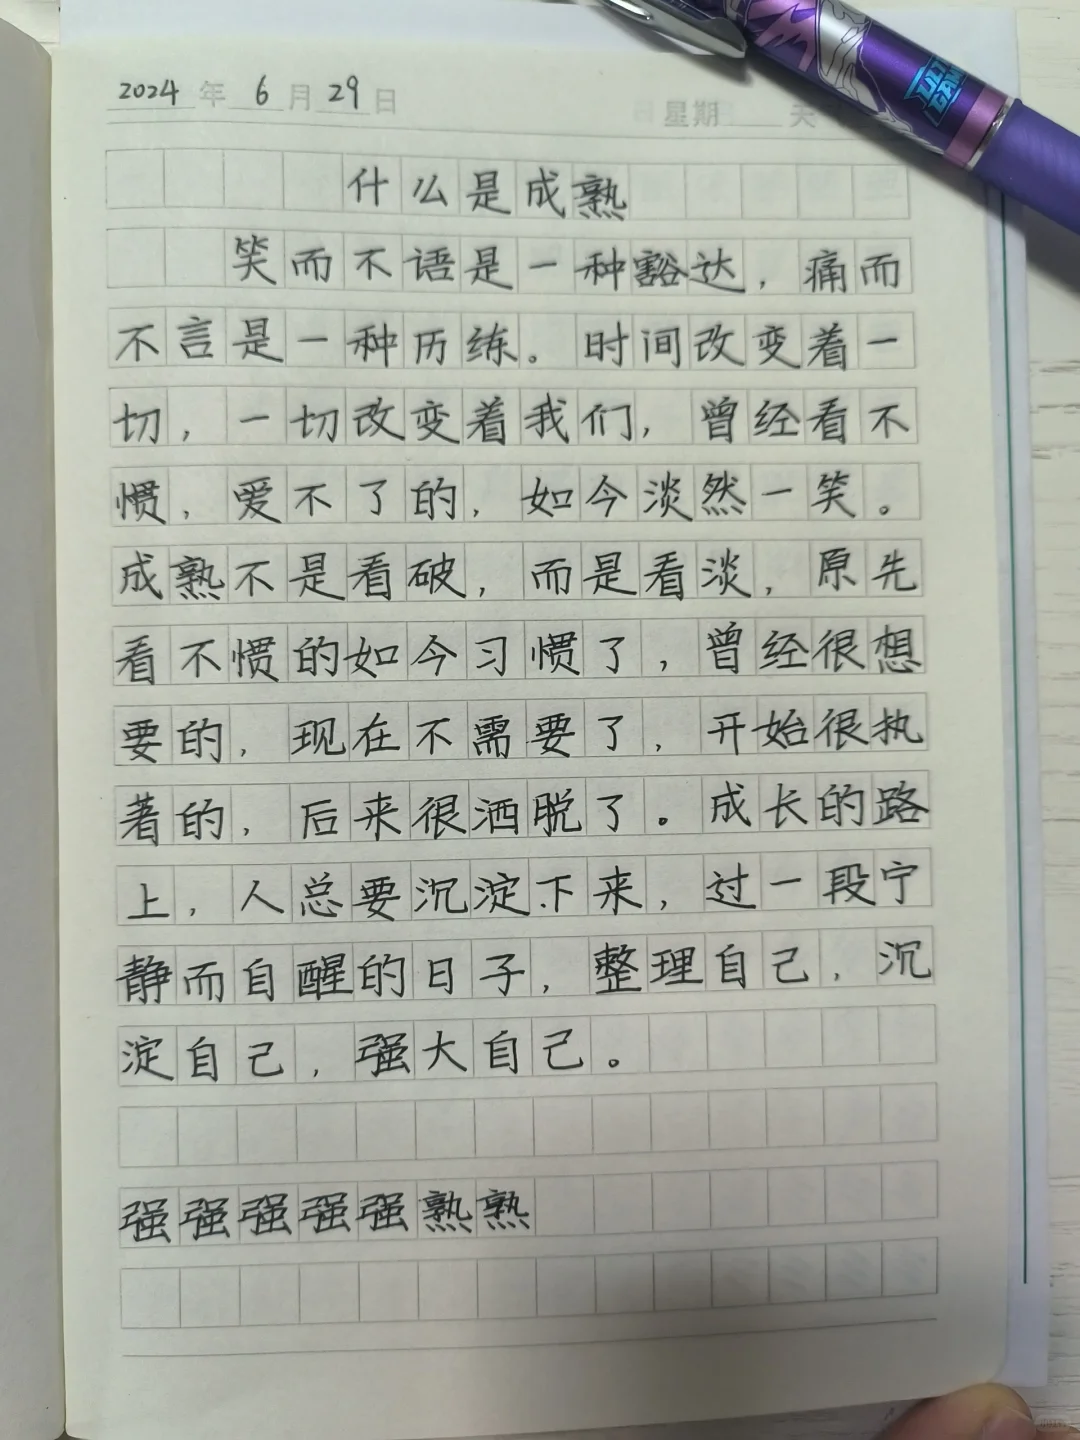 2024年6月29日 星期 天
什么是成熟
笑而不语是一种豁达，痛而
不言是一种历练。时间改变着一
切，一切改变着我们，曾经看不
惯，爱不了的，如今淡然一笑。
成熟不是看破，而是看淡，原先
看不惯的如今习惯了，曾经很想
要的，现在不需要了，开始很执
著的，后来很洒脱了。成长的路
上，人总要沉淀下来，过一段宁
静而自醒的日子，整理自己，沉
淀自己，强大自己。
强强强强强熟熟